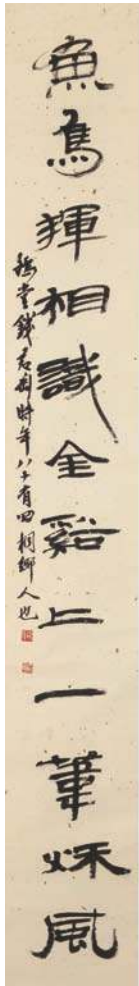 魚鳥相識全谿上一葦秌風
豫堂錢君匋時年八十有四桐鄉人也